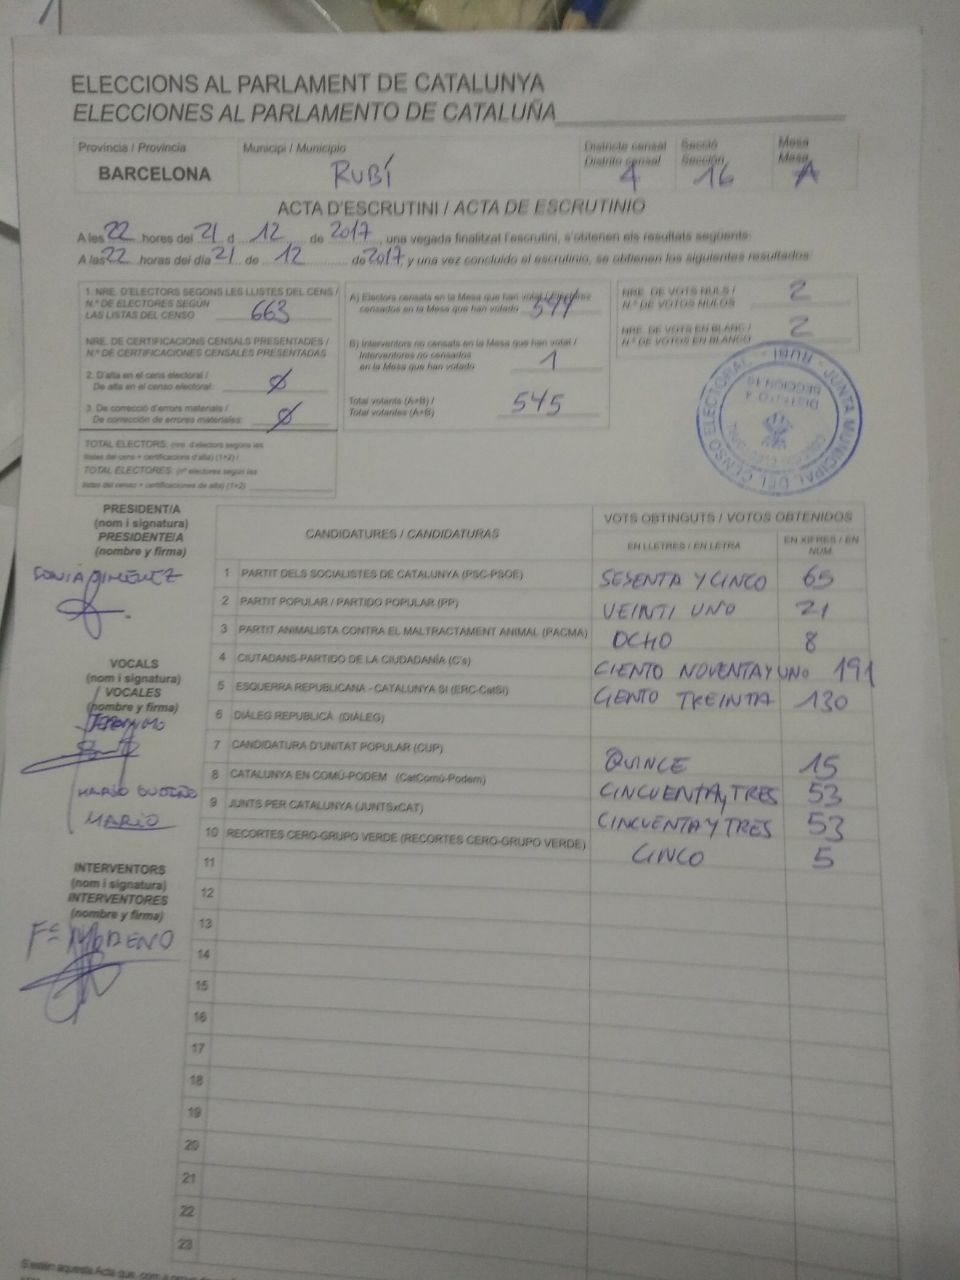 ELECCIONS AL PARLAMENT DE CATALUNYA
ELECCIONES AL PARLAMENTO DE CATALUÑA
Província / Provincia
BARCELONA
Municipi / Municipio
RUBÍ
Districte censal
Distrito censal
4
Secció
Sección
16
Mesa
Mesa
A
ACTA D'ESCRUTINI / ACTA DE ESCRUTINIO
A les 22 hores del 21 d 12 de 2017, una vegada finalitzat l'escrutini, s'obtenen els resultats següents:
A las 22 horas del día 21 de 12 de 2017, y una vez concluido el escrutinio, se obtienen los siguientes resultados:
1. NRE. D'ELECTORS SEGONS LES LLISTES DEL CENS /
N.º DE ELECTORES SEGÚN
LAS LISTAS DEL CENSO 663
NRE. DE CERTIFICACIONS CENSALS PRESENTADES /
N.º DE CERTIFICACIONES CENSALES PRESENTADAS
2. D'alta en el cens electoral /
De alta en el censo electoral: Ø
3. De correcció d'errors materials /
De corrección de errores materiales: Ø
TOTAL ELECTORS: (nre. d'electors segons les
llistes del cens + certificacions d'alta) (1+2) /
TOTAL ELECTORES: (nº electores según las
listas del censo + certificaciones de alta) (1+2)
A) Electors censats en la Mesa que han votat / Electores
censados en la Mesa que han votado 544
B) Interventors no censats en la Mesa que han votat /
Interventores no censados
en la Mesa que han votado 1
Total votants (A+B) /
Total votantes (A+B) 545
NRE. DE VOTS NULS /
N.º DE VOTOS NULOS 2
NRE. DE VOTS EN BLANC /
N.º DE VOTOS EN BLANCO 2
JUNTA MUNICIPAL DEL CENSO ELECTORAL - RUBI -
DISTRITO 4
SECCION 16
PRESIDENT/A
(nom i signatura)
PRESIDENTE/A
(nombre y firma)
SONIA GIMÉNEZ
VOCALS
(nom i signatura)
VOCALES
(nombre y firma)
JERONIMO
MARIO
INTERVENTORS
(nom i signatura)
INTERVENTORES
(nombre y firma)
Fº MORENO
CANDIDATURES / CANDIDATURAS
VOTS OBTINGUTS / VOTOS OBTENIDOS
EN LLETRES / EN LETRA
EN XIFRES / EN NÚM.
1 PARTIT DELS SOCIALISTES DE CATALUNYA (PSC-PSOE) SESENTA Y CINCO 65
2 PARTIT POPULAR / PARTIDO POPULAR (PP) VEINTI UNO 21
3 PARTIT ANIMALISTA CONTRA EL MALTRACTAMENT ANIMAL (PACMA) OCHO 8
4 CIUTADANS-PARTIDO DE LA CIUDADANÍA (C's) CIENTO NOVENTA Y UNO 191
5 ESQUERRA REPUBLICANA - CATALUNYA SÍ (ERC-CatSí) CIENTO TREINTA 130
6 DIÀLEG REPUBLICÀ (DIÀLEG)
7 CANDIDATURA D'UNITAT POPULAR (CUP) QUINCE 15
8 CATALUNYA EN COMÚ-PODEM (CatComú-Podem) CINCUENTA Y TRES 53
9 JUNTS PER CATALUNYA (JUNTSxCAT) CINCUENTA Y TRES 53
10 RECORTES CERO-GRUPO VERDE (RECORTES CERO-GRUPO VERDE) CINCO 5
11
12
13
14
15
16
17
18
19
20
21
22
23
S'estén aquesta Acta que, com a